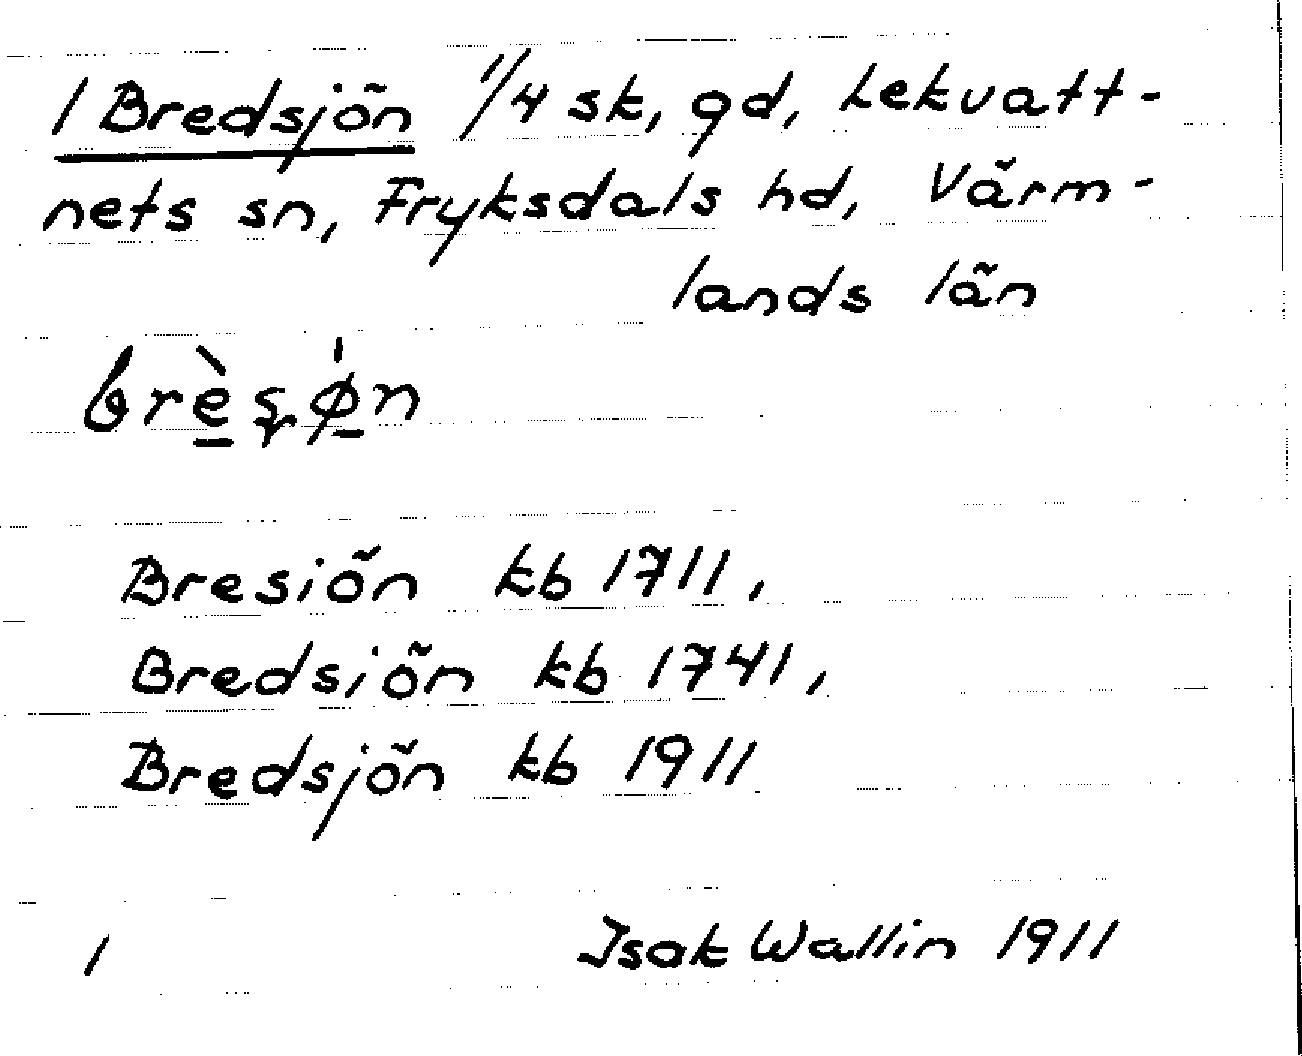 1 Bredsjön 1/4 sk, gd, Lekvatt-
nets sn, Fryksdals hd, Värm-
lands län
Bresiön kb 1711,
Bredsiön kb 1741,
Bredsjön kb 1911
1 Isak Wallin 1911